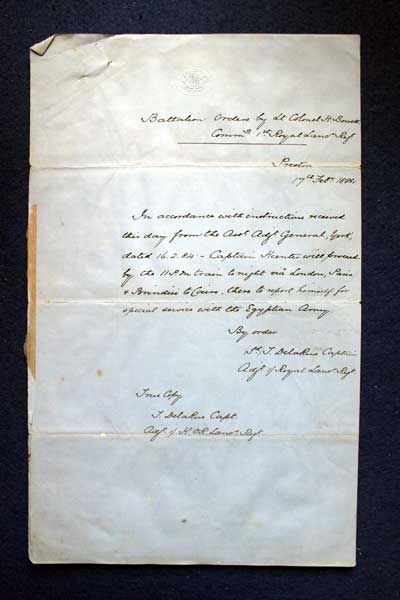 Battalion Orders by Lt Colonel H.
Commg 1st Royal Lancr Regt
Preston
17th Feby 1884
In accordance with instructions received
this day from the Asst Adjt General, York,
dated 16.2.84 - Captain Hunter will proceed
by the 11 P.M train to night via London, Paris
& Brindisi to Cairo, there to report himself for
special service with the Egyptian Army.
By order
T. Delarue Captain
Adjt of Royal Lancr Regt
True Copy
T. Delarue Capt.
Adjt of K.O.R. Lancr Regt.